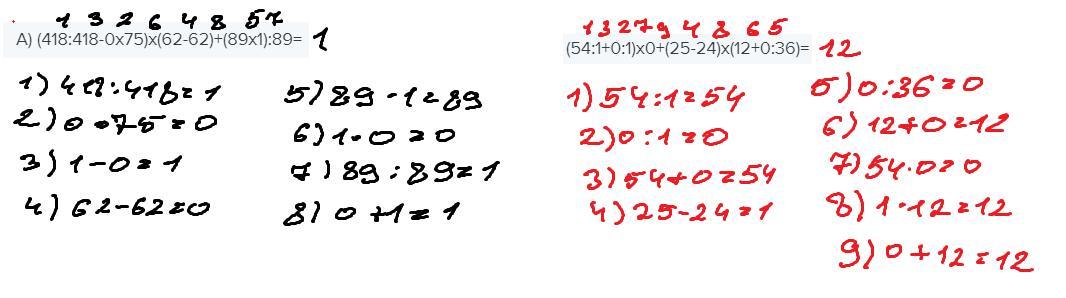 1 3 2 6 4 8 5 7
А) (418:418-0x75)x(62-62)+(89x1):89= 1
1) 418:418=1
2) 0•75=0
3) 1-0=1
4) 62-62=0
5) 89•1=89
6) 1•0=0
7) 89:89=1
8) 0+1=1
1 3 2 7 9 4 8 6 5
(54:1+0:1)x0+(25-24)x(12+0:36)= 12
1) 54:1=54
2) 0:1=0
3) 54+0=54
4) 25-24=1
5) 0:36=0
6) 12+0=12
7) 54•0=0
8) 1•12=12
9) 0+12=12